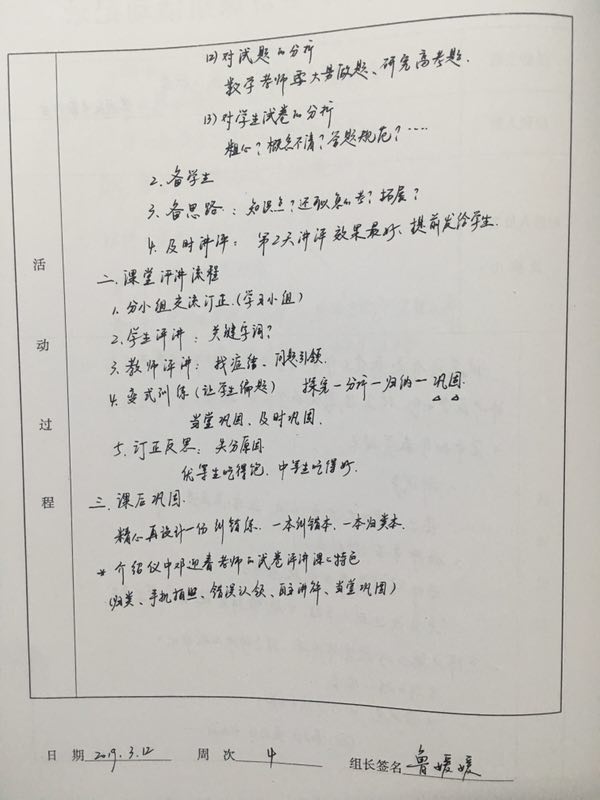 (2) 对试题的分析
数学老师要大量做题、研究高考题.
(3) 对学生试卷的分析
粗心？概念不清？答题规范？……
2. 备学生
3. 备思路：知识点？还可以怎么考？拓展？
4. 及时讲评：第2天讲评效果最好、提前发给学生.
二. 课堂评讲流程
1. 分小组交流订正.(学习小组)
2. 学生评讲：关键字词？
3. 教师评讲：找症结、问题引领.
4. 变式训练(让学生编题) 探究—分析—归纳—巩固.
当堂巩固、及时巩固.
5. 订正反思：失分原因
优等生吃得饱、中等生吃得好.
三. 课后巩固.
精心再设计一份纠错练、一本纠错本、一本归类本.
* 介绍仪中邓迎春老师的试卷评讲课之特色
(归类、手机拍照、错误认领、自主讲解、当堂巩固)
活动过程
日 期 2019.3.12 周 次 4 组长签名 鲁媛媛